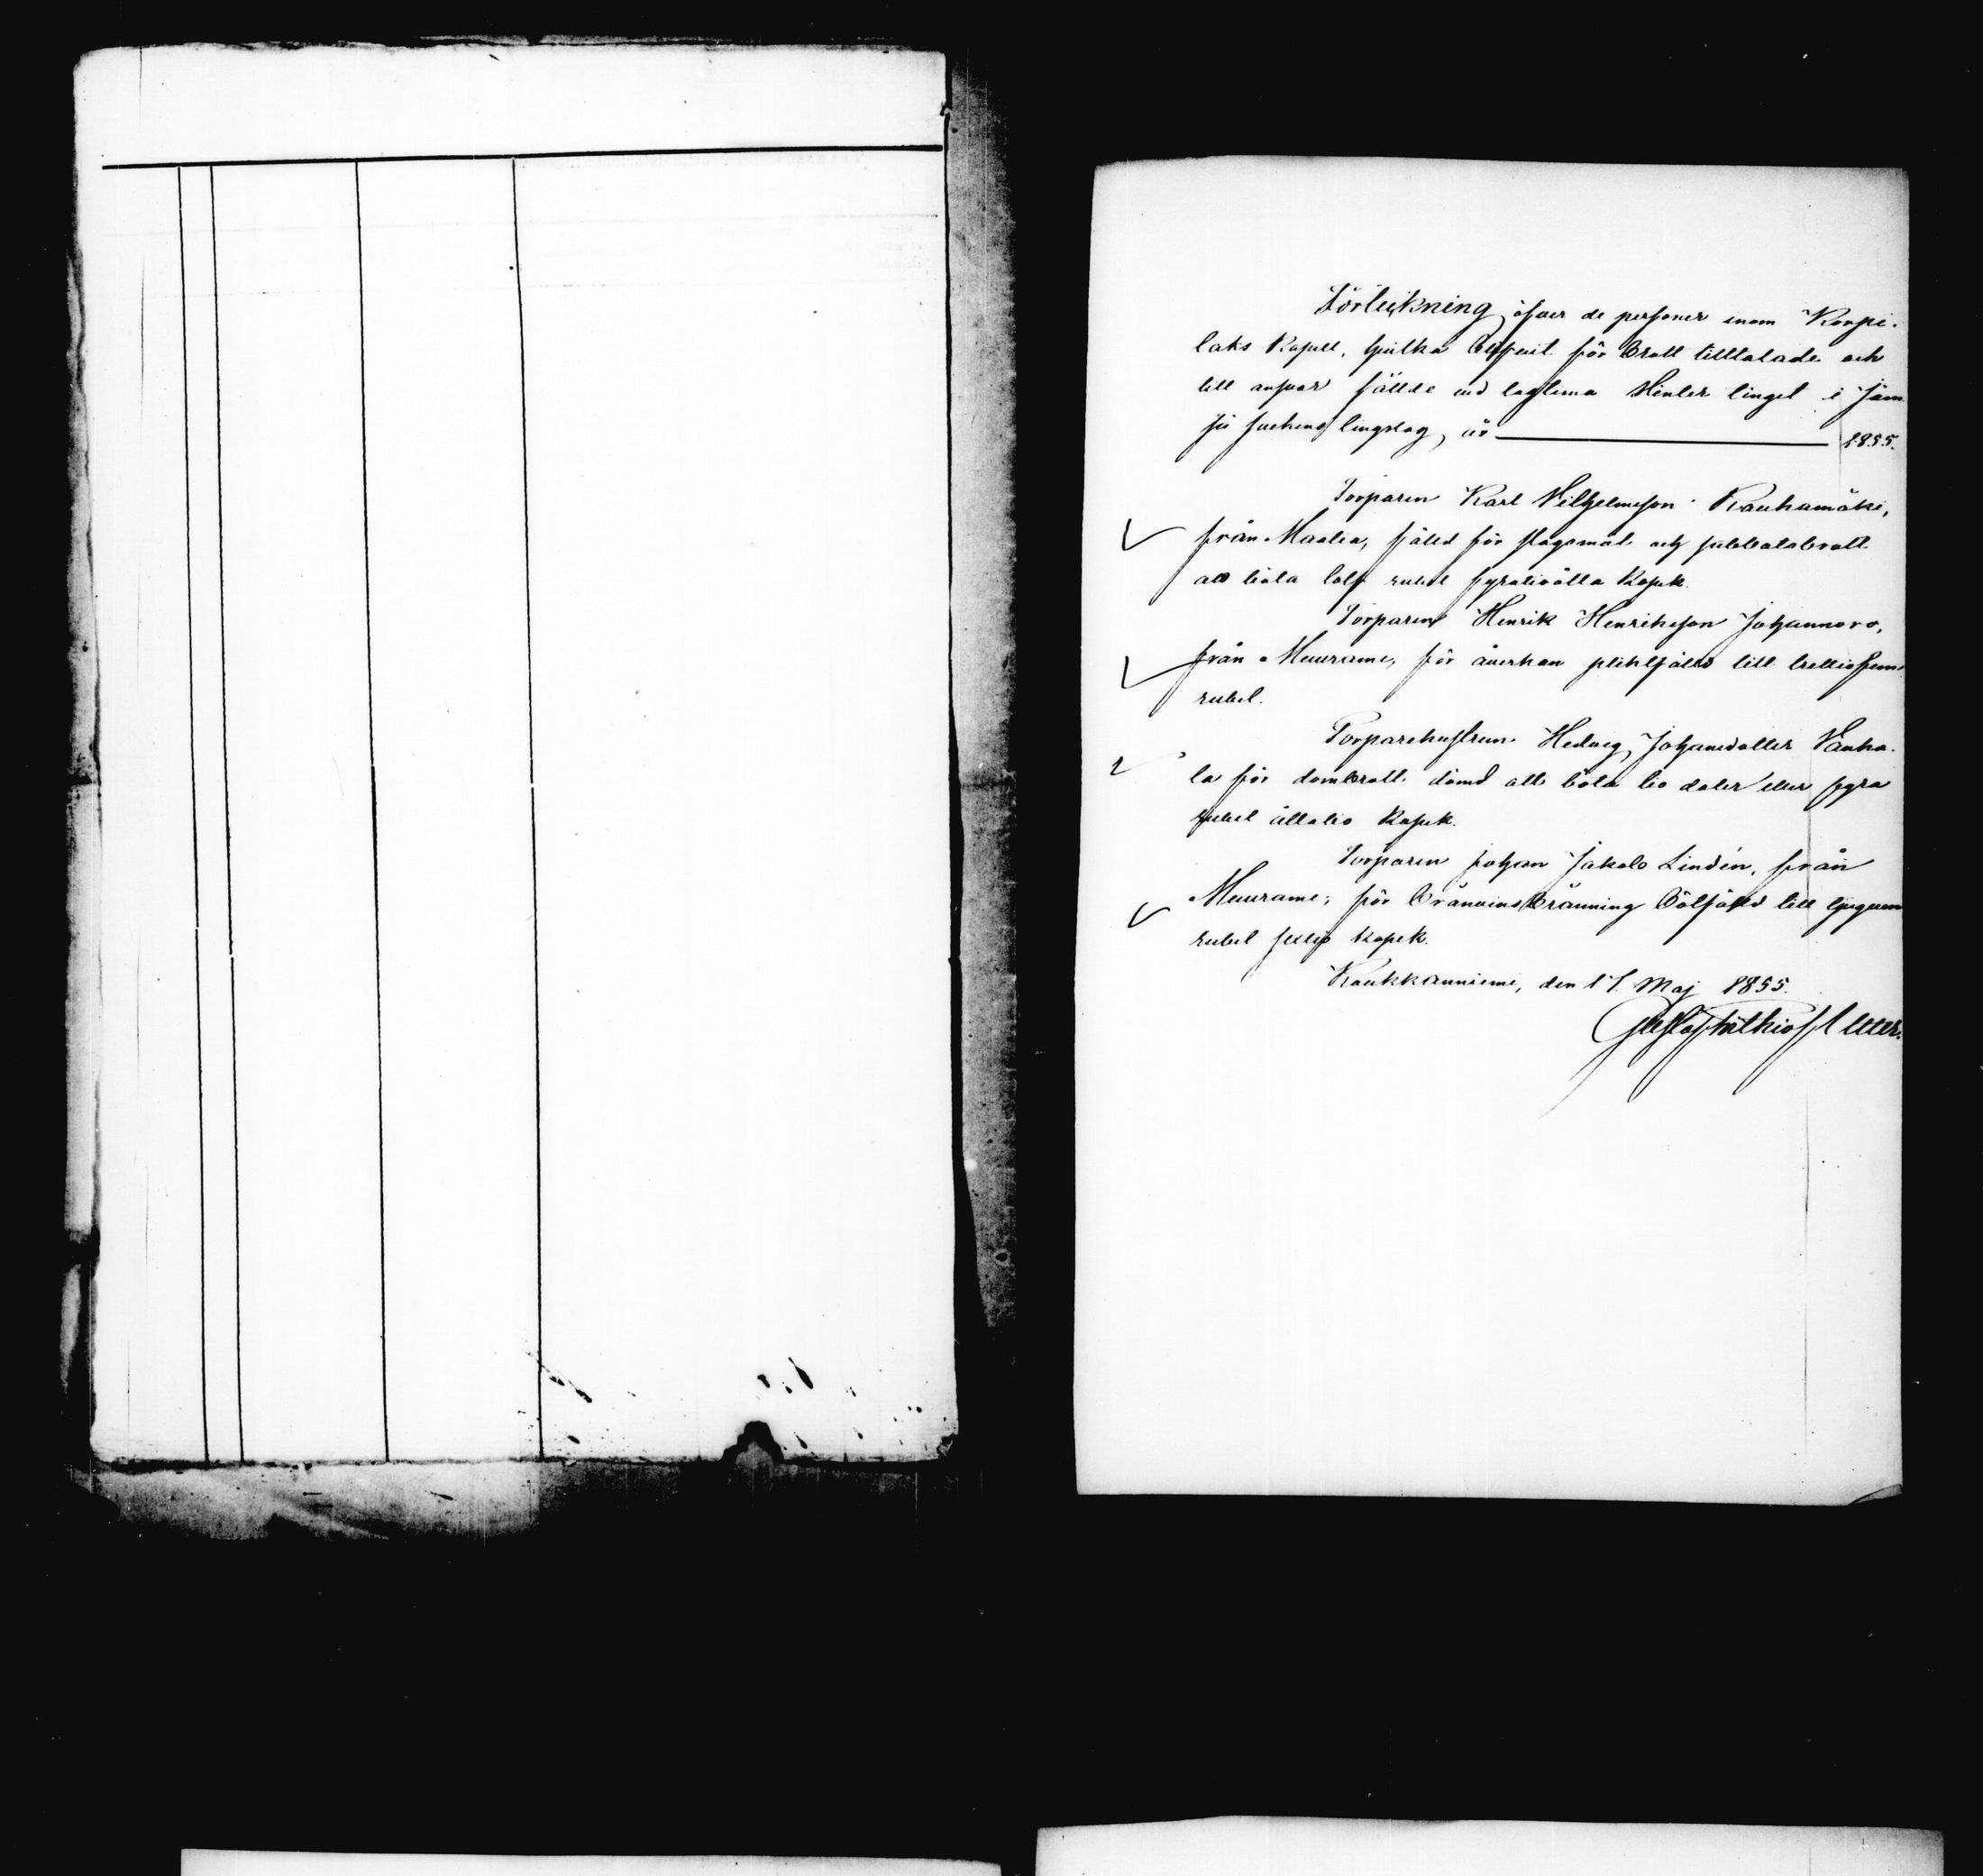 Förteckning öfver de personer inom Korpi-
laks Kapell, hvilka blifvit för brott tilltalade och
till ansvar fällde vid lagtima Vinter tinget i Jäm
sä sockens tingslag, år 1855.
Torparen Karl Vilhelmsson Rauhamäki,
från Maalia, fälld för slagsmål och sabbatsbrott
att böta tolf rubel fyratioåtta Kopek.
Torparen Henrik Henriksson Johannoro,
från Muurame, för åverkan pliktfälld till trettiofem
rubel.
Torparehustrun Hedvig Johansdotter Vanha-
la för dombrott dömd att böta tio daler eller fyra
rubel åttatio Kopek.
Torparen Johan Jakob Lindén, från
Muurame, för bränvinsbränning bötfälld till tjugufem
rubel sextio Kopek.
Raukkanniemi, den 17 Maj 1855.
Gustaf